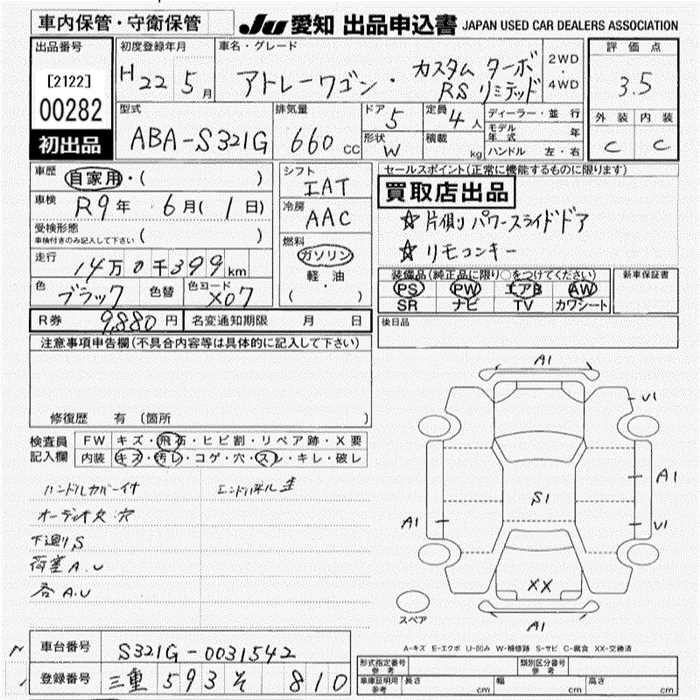 車内保管・守衛保管
JU 愛知 出品申込書 JAPAN USED CAR DEALERS ASSOCIATION
出品番号
[2122]
00282
初出品
初度登録年月
H22年5月
車名・グレード
アトレーワゴン・カスタム ターボ RS リミテッド
2WD・4WD
評価点
3.5
外装 内装
C C
型式
ABA-S321G
排気量
660 CC
ドア 5
形状 W
定員 4人
積載 kg
ディーラー・並行
モデル年式 年
ハンドル 左・右
車歴 自家用・( )
車検 R9年 6月(1日)
受検形態
車検付きのみ記入して下さい ( )
走行 14万0千399km
色 ブラック 色替 色コード X07
R券 9,880円 名変通知期限 月 日
シフト
IAT
冷房
AAC
燃料
ガソリン
軽・油
( )
セールスポイント(正常に機能するものに限ります)
買取店出品
☆片側パワースライドドア
☆リモコンキー
装備品(純正品に限り○をつけてください) 新車保証書
PS PW エアB AW
SR ナビ TV カワシート
後日品
注意事項申告欄(不具合内容等は具体的に記入して下さい)
修復歴 有(箇所 )
検査員記入欄
FW キズ・飛石・ヒビ割・リペア跡・X要
内装 キズ・汚レ・コゲ・穴・スレ・キレ・破レ
ハンドルカバー付
下廻りS
荷室A.U
各A.U
A1
U1
A1
S1
A1
U1
XX
A1
スペア
A-キズ E-エクボ U-凹み W-補修跡 S-サビ C-腐食 XX-交換済
車台番号 S321G-0031542
登録番号 三重 593 そ 810
形式指定番号 参考 類別区分番号 参考
車庫証明用 参考 長さ cm 幅 cm 高さ cm